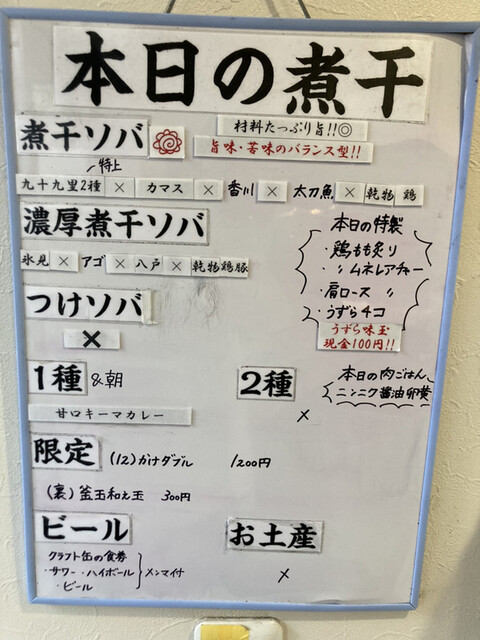 本日の煮干
煮干ソバ
材料たっぷり旨!!◎
旨味・苦味のバランス型!!
特上
九十九里2種 × カマス × 香川 × 太刀魚 × 乾物 鶏
濃厚煮干ソバ
氷見 × アゴ × 八戸 × 乾物鶏豚
本日の特製
・鶏もも炙り
・〃ムネレアチャー
・肩ロース 〃
・うずら4コ
うずら味玉
現金100円!!
つけソバ
×
1種 &朝
甘口キーマカレー
2種
×
本日の肉ごはん
ニンニク醤油卵黄
限定 (12)かけダブル 1200円
(裏)釜玉和え玉 300円
ビール
クラフト缶の食券
・サワー・ハイボール
・ビール
メンマ付
お土産
×